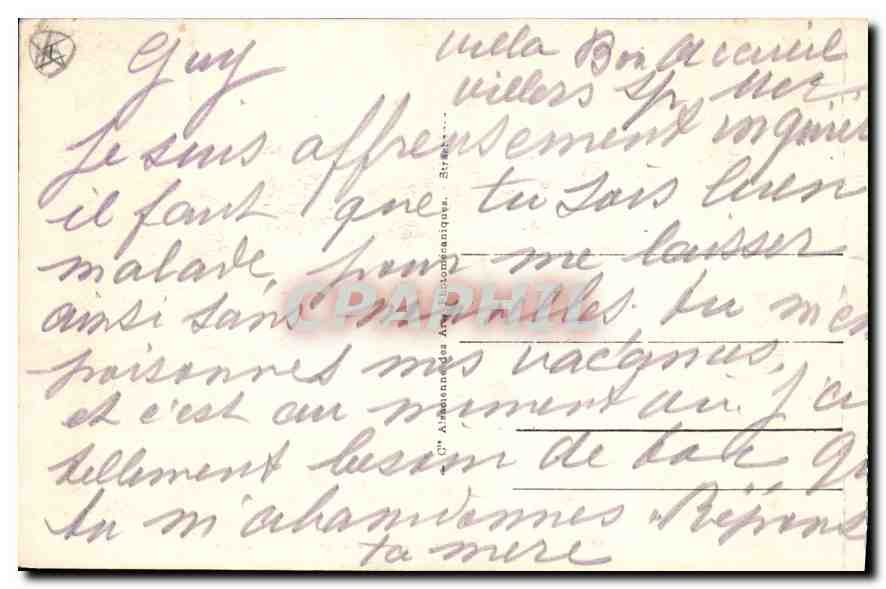 Guy
Villa Bon Accueil
Villers sp Mer
Je suis affreusement inquiet
il faut que tu sois bien
malade, pour me laisser
ainsi sans nouvelles. tu m'em
poisonnes mes vacances,
et c'est au moment où j'ai
tellement besoin de toi, qu
tu m'abandonnes. Répons
ta mere
Cie Alsacienne des Arts Photomécaniques. Strasb
CPAPHIL